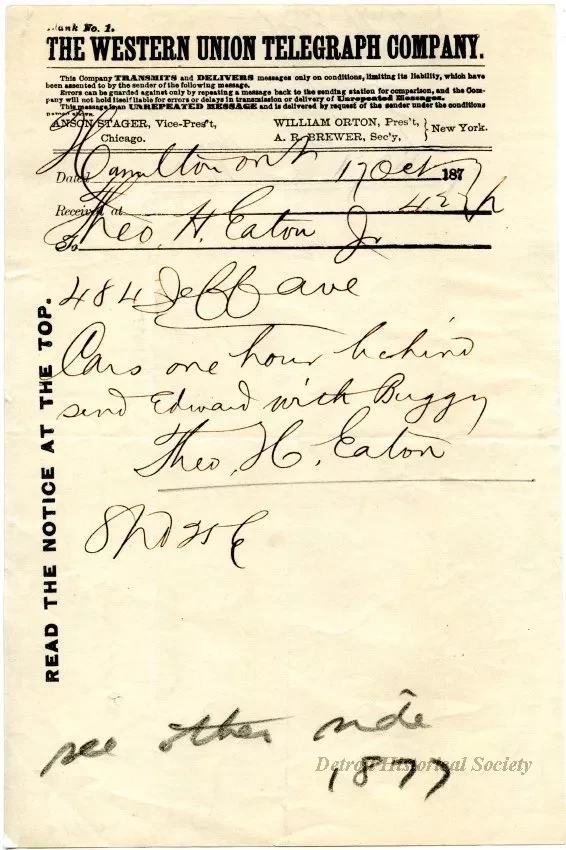 Blank No. 1.
THE WESTERN UNION TELEGRAPH COMPANY.
This Company TRANSMITS and DELIVERS messages only on conditions, limiting its liability, which have
been assented to by the sender of the following message.
Errors can be guarded against only by repeating a message back to the sending station for comparison, and the Com-
pany will not hold itself liable for errors or delays in transmission or delivery of Unrepeated Messages.
This message is an UNREPEATED MESSAGE and is delivered by request of the sender under the conditions
named above.
ANSON STAGER, Vice-Pres't, WILLIAM ORTON, Pres't,
Chicago. A. R. BREWER, Sec'y, New York.
Dated Hamilton Ont 17 Oct 1877
Received at
To Theo. H. Eaton Jr
484 Jeff ave
Cars one hour behind
send Edward with Buggy
Theo. H. Eaton
READ THE NOTICE AT THE TOP.
see other side
1877
Detroit Historical Society